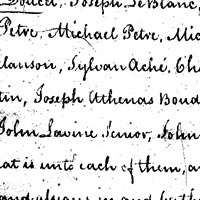 Doucet, Joseph LeBlanc,
Petre, Michael Petre, Mic
lanson, Sylvan Aché, Ch
tin, Joseph Athenas Boud
John Lavrie Senior, John
at is unto each of them, a